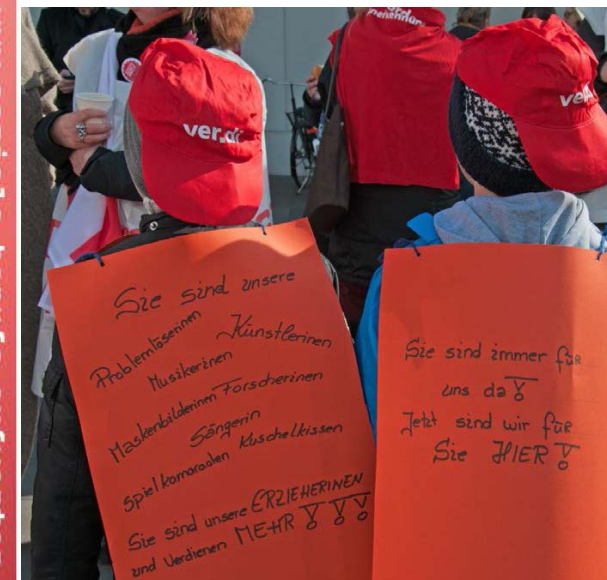 ver.di
ver.di
Sie sind unsere
Problemlöserinen Künstlerinen
Musikerinen
Maskenbilderinen Forscherinen
Sängerin
spielkamaraden Kuschelkissen
Sie sind unsere ERZIEHERINEN
und Verdienen MEHR !!!
Sie sind immer für
uns da!
Jetzt sind wir für
Sie HIER!